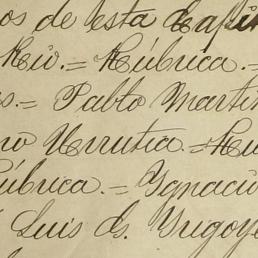 os de esta Capi
Riv.= Rúbrica.=
s.= Pablo Martin
no Urrutia.= Rú
úbrica.= Ygnacio
Luis G. Yrigoye